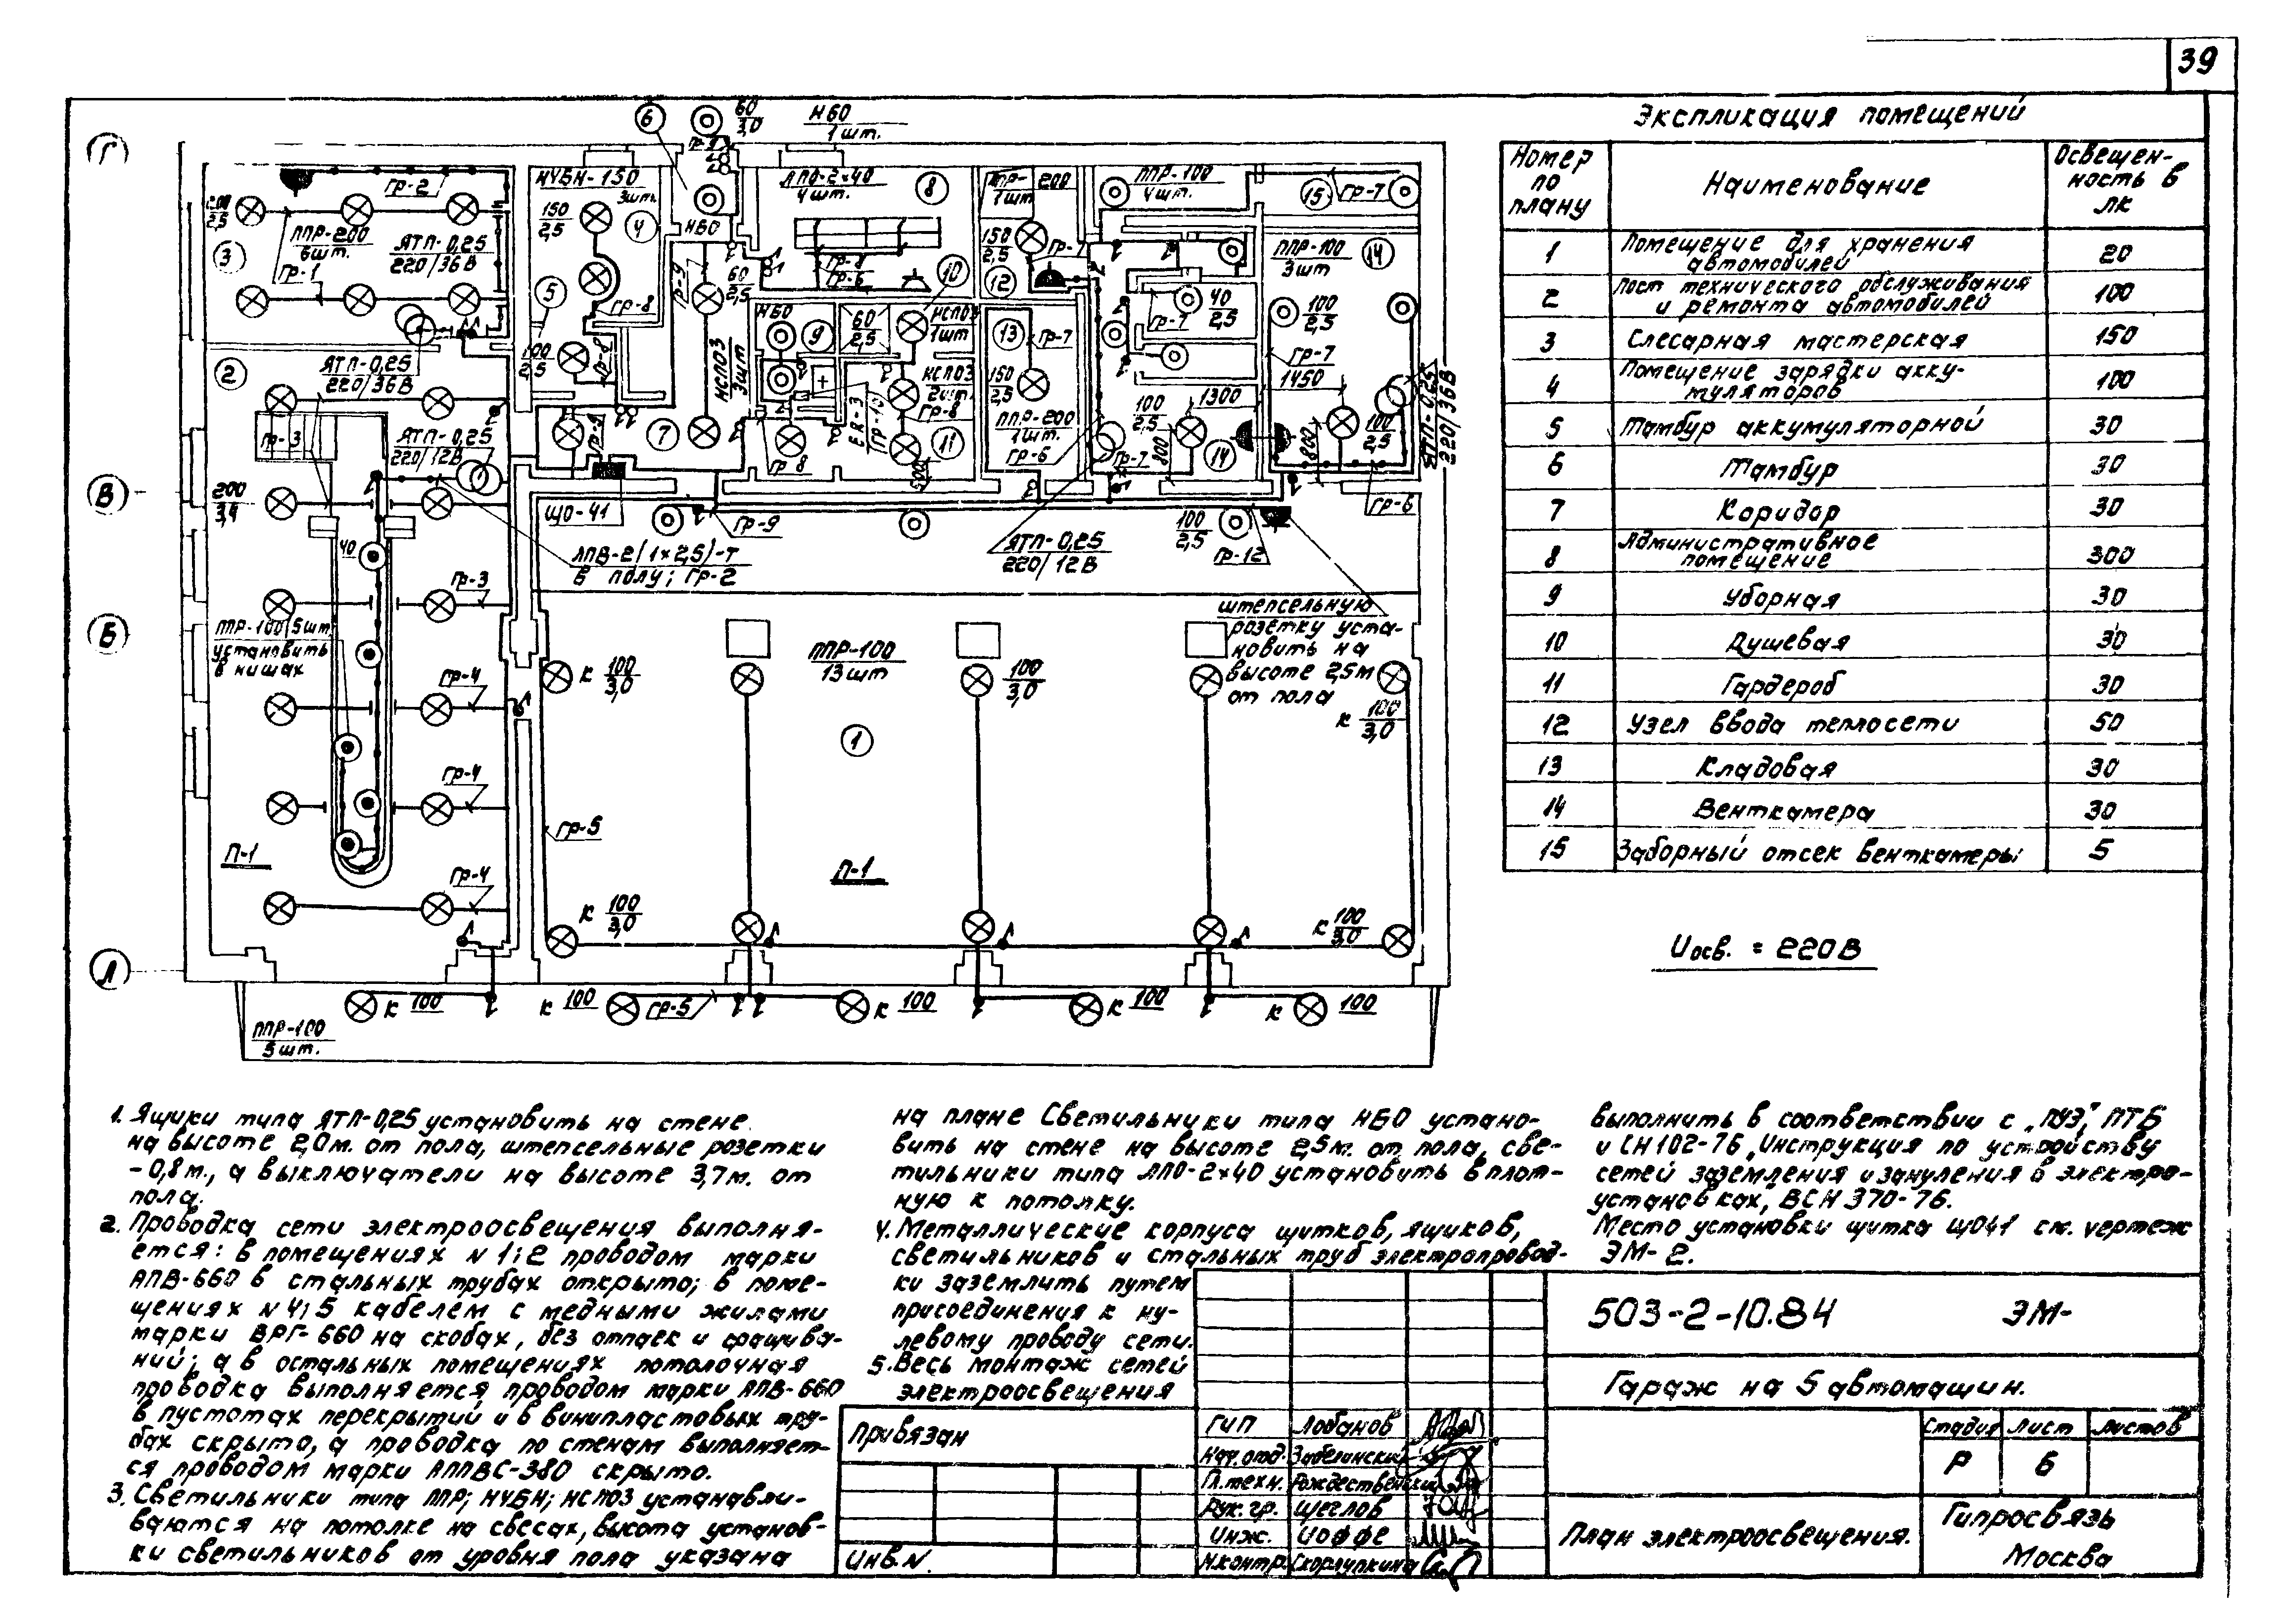 39
Экспликация помещений
Номер по плану
Наименование
Освещенность в лк
1 Помещение для хранения автомобилей 20
2 Пост технического обслуживания и ремонта автомобилей 100
3 Слесарная мастерская 150
4 Помещение зарядки аккумуляторов 100
5 Тамбур аккумуляторной 30
6 Тамбур 30
7 Коридор 30
8 Административное помещение 300
9 Уборная 30
10 Душевая 30
11 Гардероб 30
12 Узел ввода теплосети 50
13 Кладовая 30
14 Венткамера 30
15 Заборный отсек венткамеры 5
Uосв. = 220В
Г
В
Б
А
6
60
3,0
НБО
1 шт.
Гр-2
200
2,5
ППР-200
6шт.
ЯТП-0,25
220/36В
3
Гр-1
2
ЯТП-0,25
220/36В
Гр-3
ЯТП-0,25
220/12В
200
3,4
40
ППР-100 5шт.
установить
в нишах
Гр-3
Гр-4
Гр-4
Гр-4
П-1
НЧБН-150
3шт.
150
2,5
4
НБО
5
Гр-8
Гр-9
60
2,5
100
2,5
Гр-8
НСПО3
3шт
7
ЩО-41
АПВ-2(1×2,5)-Т
в полу; Гр-2
ЛПО-2×40
4шт.
8
Гр-8
Гр-6
10
НБО
9
60
2,5
НСПО3
1шт
НСПО3
2шт.
Гр-8
Гр-10
11
Гр 8
500
Гр-9
ППР-200
1шт
150
2,5
12
Гр-7
13
Гр-7
150
2,5
ППР-200
1шт.
Гр-6
ППР-100
4шт.
15
Гр-7
ППР-100
3шт
14
40
2,5
Гр-7
100
2,5
Гр-7
1450
1300
100
2,5
800
Гр-7
14
800
100
2,5
ЯТП-0,25
220/36В
Гр-6
ЯТП-0,25
220/12В
100
2,5
Гр-12
штепсельную
розетку уста-
новить на
высоте 2,5м
от пола
К 100
3,0
ППР-100
13шт
100
3,0
К 100
3,0
1
Гр-5
П-1
К 100
3,0
К 100
3,0
К 100
К 100
Гр-5
К 100
К 100
К 100
ППР-100
5шт.
1. Ящики типа ЯТП-0,25 установить на стене
на высоте 2,0м. от пола, штепсельные розетки
-0,8м., а выключатели на высоте 3,7м. от
пола.
2. Проводка сети электроосвещения выполня-
ется: в помещениях N 1;2 проводом марки
АПВ-660 в стальных трубах открыто; в поме-
щениях N 4;5 кабелем с медными жилами
марки ВРГ-660 на скобах, без отпаек и сращива-
ний; а в остальных помещениях потолочная
проводка выполняется проводом марки АПВ-660
в пустотах перекрытий и в винипластовых тру-
бах скрыто, а проводка по стенам выполняет-
ся проводом марки АППВС-380 скрыто.
3. Светильники типа ППР; НЧБН; НСПО3 устанавли-
ваются на потолке на свесах, высота установ-
ки светильников от уровня пола указана
на плане Светильники типа НБО устано-
вить на стене на высоте 2,5м. от пола, све-
тильники типа ЛПО-2×40 установить вплот-
ную к потолку.
4. Металлические корпуса щитков, ящиков,
светильников и стальных труб электропровод-
ки заземлить путем
присоединения к ну-
левому проводу сети.
5. Весь монтаж сетей
электроосвещения
выполнить в соответствии с „ПУЭ", ПТБ
и СН 102-76 „Инструкция по устройству
сетей заземления и зануления в электро-
установках", ВСН 370-76.
Место установки щитка ЩО41 см. чертеж
ЭМ-2.
Привязан
Инв.N.
ГИП Лобанов
Нач.отд. Забелинский
Гл.техн. Рождественский
Рук.гр. Щеглов
Инж. Иоффе
Н.контр. Скорлупкина
503-2-10.84 ЭМ-
Гараж на 5 автомашин.
Стадия Лист Листов
Р 6
План электроосвещения.
Гипросвязь
Москва